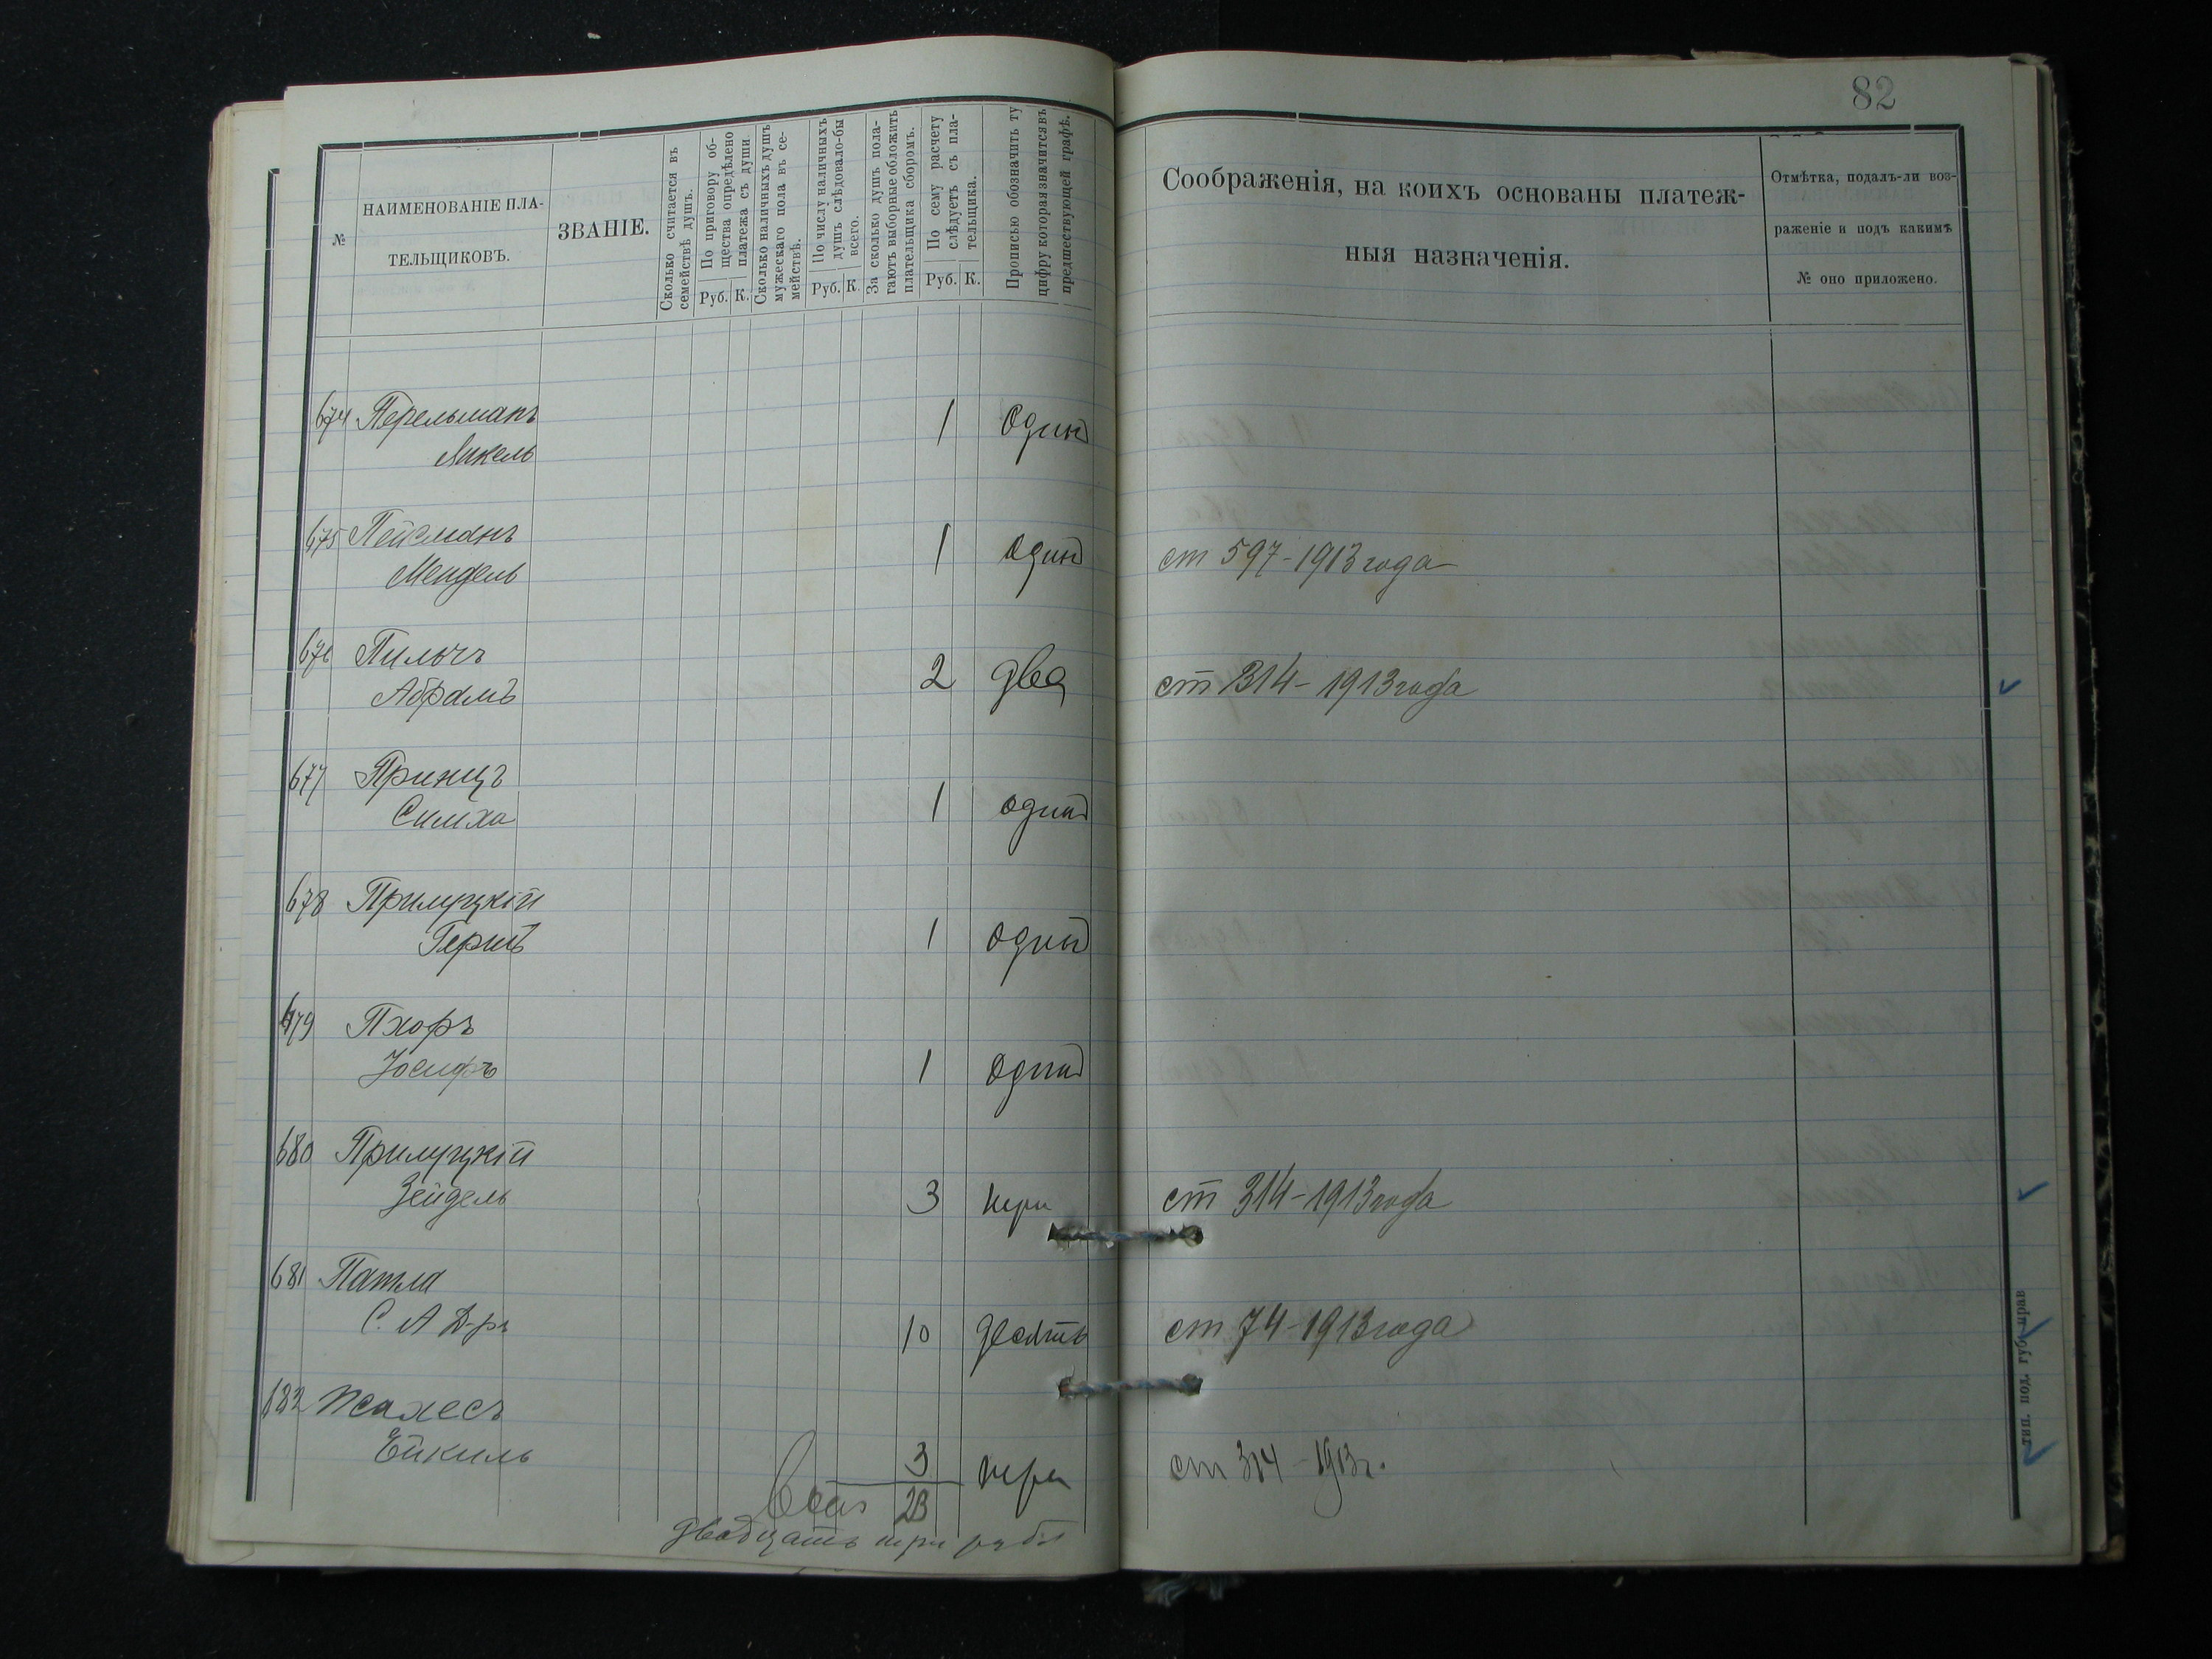 82
№
НАИМЕНОВАНІЕ ПЛА-
ТЕЛЬЩИКОВЪ.
ЗВАНІЕ.
Сколько считается въ
семействѣ душъ.
По приговору об-
щества опредѣлено
платежа съ души.
Руб. К.
Сколько наличныхъ душъ
мужескаго пола въ се-
мействѣ.
По числу наличныхъ
душъ слѣдовало-бы
всего.
Руб. К.
За сколько душъ пола-
гаютъ выборные обложить
плательщика сборомъ.
По сему расчету
слѣдуетъ съ пла-
тельщика.
Руб. К.
Прописью обозначить ту
цифру которая значится въ
предшествующей графѣ.
Соображенія, на коихъ основаны платеж-
ныя назначенія.
Отмѣтка, подалъ-ли воз-
раженіе и подъ какимъ
№ оно приложено.
674 Перельманъ
Янкель 1 Одинъ
675 Пейсманъ
Мендель 1 Одинъ ст 597-1913 года
676 Пильчъ
Абрамъ 2 два ст 314-1913 года
677 Принцъ
Симха 1 одинъ
678 Прилуцкій
Гершъ 1 одинъ
679 Пхоръ
Іосифъ 1 одинъ
680 Прилуцкій
Зейдель 3 три ст 314-1913 года
681 Патла
С. А Д-ръ 10 десять ст 74-1913 года
682 Псахесъ
Ейкиль 3 три ст 314-1913 г.
Всего 23
двадцать три рубл
тип. под. губ. прав